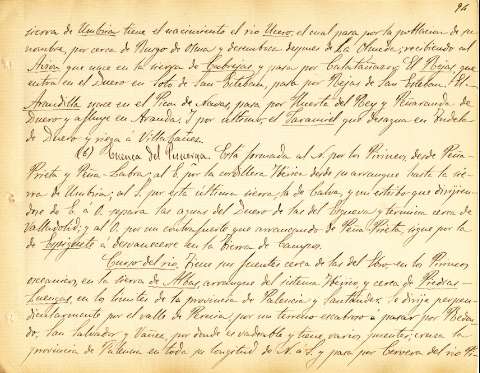 94
sierra de Umbria tiene el nacimiento el rio Ucero, el cual pasa por la poblacion de su
nombre, por cerca de Burgo de Osma y desemboca despues de La Olmeda; recibiendo al
Avion que nace en la sierra de Cabrejas y pasa por Calatañazor; El Rejas que
entra en el Duero en Soto de San Esteban, pasa por Rejas de San Esteban. El
Arandilla nace en el Pico de Navas, pasa por Huerta del Rey y Peñaranda de
Duero y afluye en Aranda. Y por ultimo, el que desagua en Tudela
de Duero y riega á Villabañez.
(6) Cuenca del Pisuerga. Esta formada al N. por los Pirineos, desde Peña
Prieta y Peña-Labra; al E. por la cordillera Iberica desde su arranque hasta la sie-
rra de Umbria; al S. por esta ultima sierra, la de Calva, y un estribo que dirijien-
dose de E. á O. separa las aguas del Duero de las del Esgueva y termina cerca de
Valladolid; y al O. por un contrafuerte que arrancando de Peña Prieta, sigue por la
de Espigüete á desvanecerse en la Tierra de Campos.
Curso del rio. Tiene sus fuentes cerca de las del Ebro en los Pirineos
oceanicos, en la sierra de Albas, arranque del sistema Iberico, y cerca de Piedras-
Luengas, en los limites de la provincia de Palencia y Santander. Se dirije perpen-
dicularmente por el valle de Pernia, por un terreno escabroso á pasar por Redon-
do, San Salvador y Vañes, por donde es vadeable y tiene varios puentes; cruza la
provincia de Palencia en toda su longitud de N. á S. y pasa por Cervera del rio Pi-